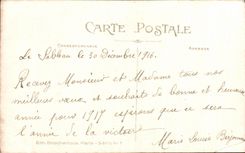 CARTE POSTALE
CORRESPONDANCE ADRESSE
Le 30 Décembre 1916.
Recevez Monsieur et Madame tous nos
meilleurs vœux et souhaits de bonne et heureuse
année pour 1917 espérons que ce sera
l'année de la victoire
Marie Louise